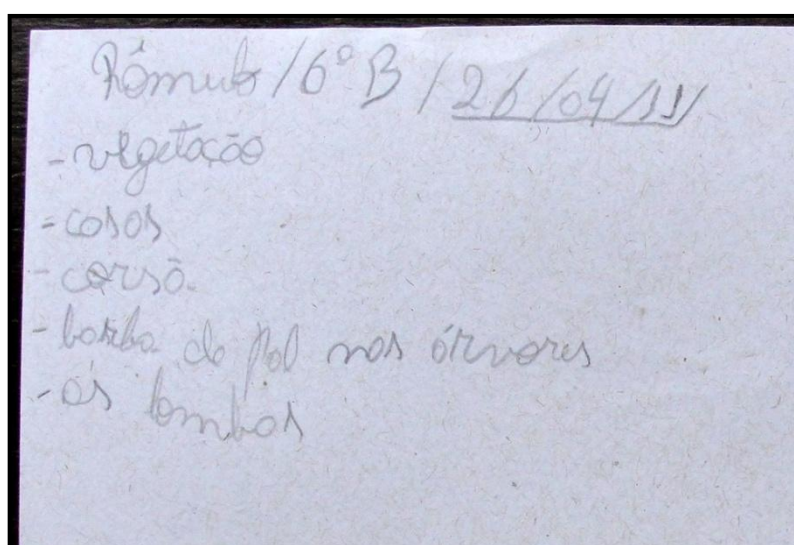 Rômulo / 6º B / 26/04/11
- vegetação
- casas
-
- barba de pal nas árvores
- as lombas